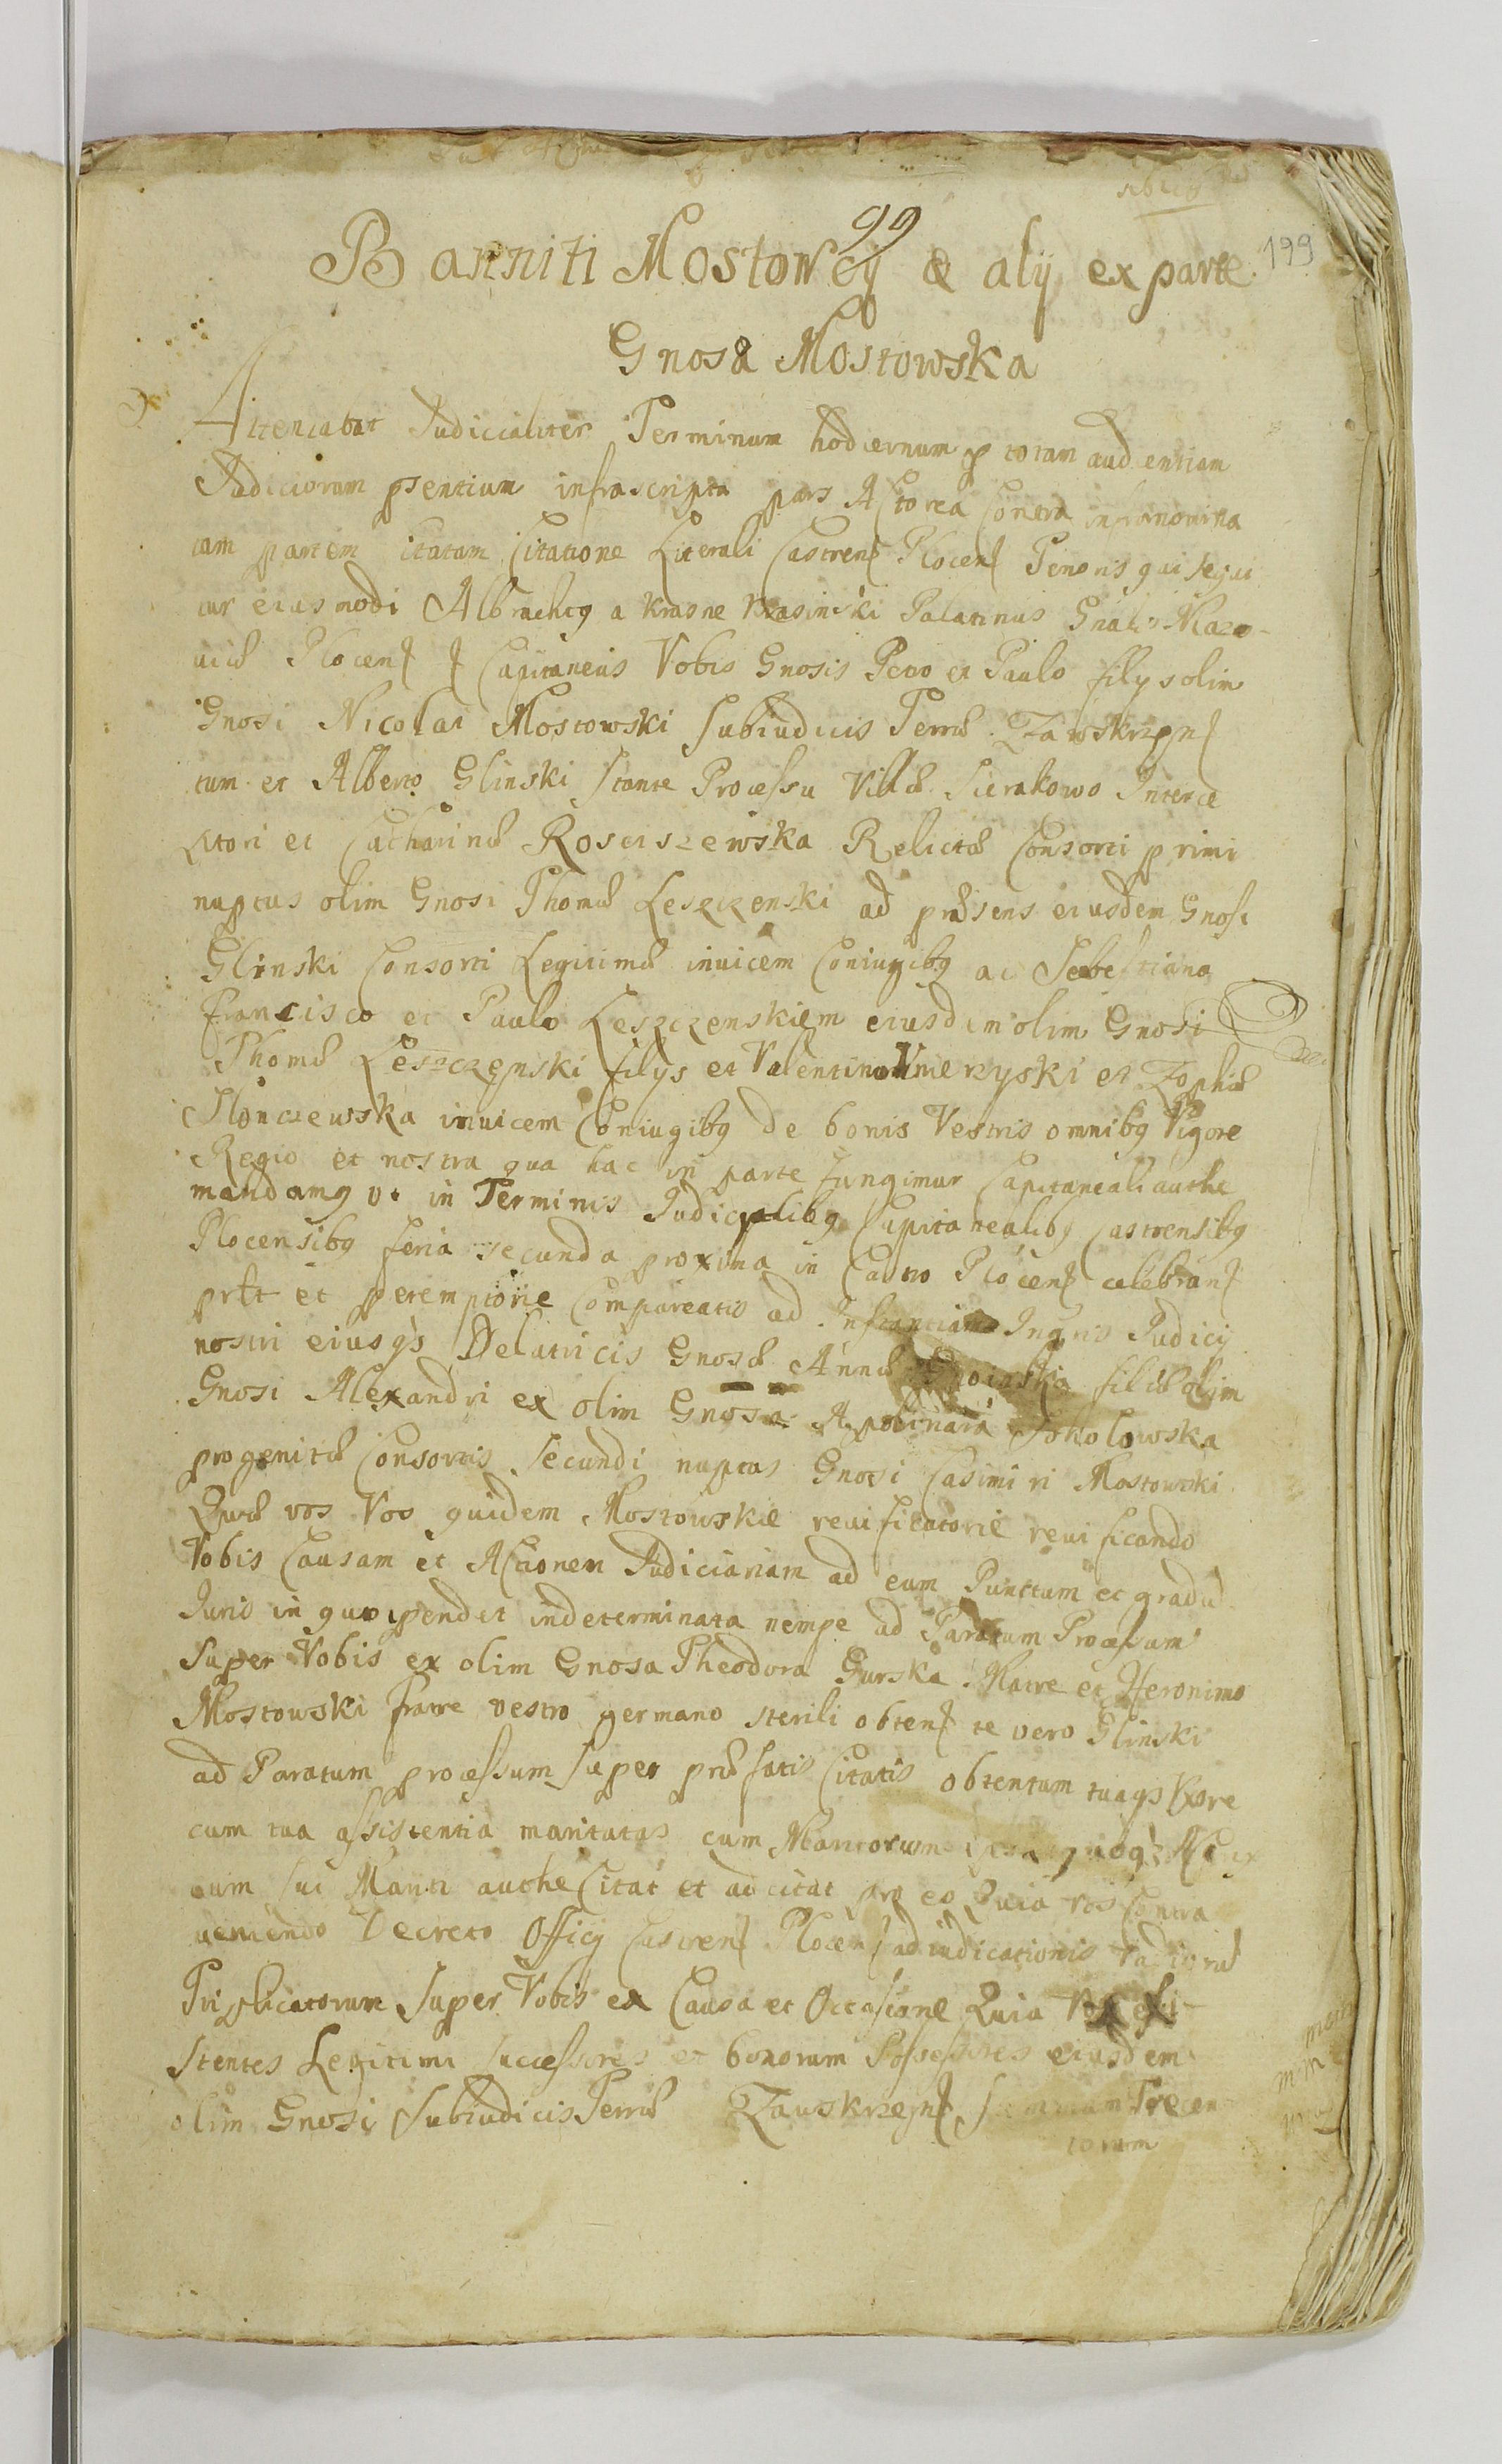 99
199
Banniti Mostowscy & alij ex parte
Gnosa Mostowska
Attentabat Judicialiter Terminum hodiernum p totam audientiam
Judiciorum psentium infrascripta pars Actorea Contra infranomina
tam partem citatam Citatione Literali Castren Plocen Tenoris qui sequi
tur eiusmodi Albrachtq a Krasne Krasinski Palatinus Gnalis Mazo-
uiæ Plocen Capitaneus Vobis Gnosis Petro et Paulo filys olim
Gnosi Nicolai Mostowski Subiudicis Terræ Zawskrzyn
tum et Alberto Glinski stante Processu Villæ Sierakowo Interce
ptori et Catharinæ Rosciszewska Relictæ Consorti primi
nuptus olim Gnosi Thomæ Leszczenski ad præsens eiusdem Gnosi
Glinski Consorti Legitimæ inuicem Coniugibq ac Sebestiano
Francisco et Paulo Leszczenskiem eiusdem olim Gnosi
Thomæ Leszczenski filys et Valentino et Zophiæ
Slonczewska inuicem Coniugibq de bonis Vestris omnibq Vigore
Regio et nostra qua hac in parte fungimur Capitaneali authe
mandamq vt in Terminis Judicialibq Capitanealibq Castrensibq
Plocensibq feria secunda proxima in Castro Plocen celebran
prlt et peremptorie Compareatis ad Instantiam Ingnis Judicij
nostri eiusqs Delatricis Gnosæ Annæ filiæ olim
Gnosi Alexandri ex olim Gnosa Apolinara Sokolowska
progenitæ Consortis secundi nuptus Gnosi Casimiri Mostowski
Quæ vos Vos quidem Mostowskie reuificatorie reuificando
Vobis Causam et Actionem Judiciariam ad eum Punctum et gradu
Juris in quo pendet indeterminata nempe ad Paratum Processum
super Vobis ex olim Gnosa Theodora Gurska Matre et Heronimo
Mostowski fratre vestro germano sterili obten te vero Glinski
ad Paratum processum super præfatis Citatis obtentum tuaqs Vxore
cum tua assistentia maritatas cum Maritorum quoq
cum sui Mariti authe Citat et adcitat pro eo Quia vos Contra
ueniendo Decreto Officij Castren Plocen adiudicationis Vadiorum
Triplicatorum super Vobis ex Causa et Occasione Quia Vos exi-
stentes Legitimi successores et bonorum Possessores eiusdem
olim Gnosi Subiudicis Terræ Zawskrzyn summam Trecen
torum